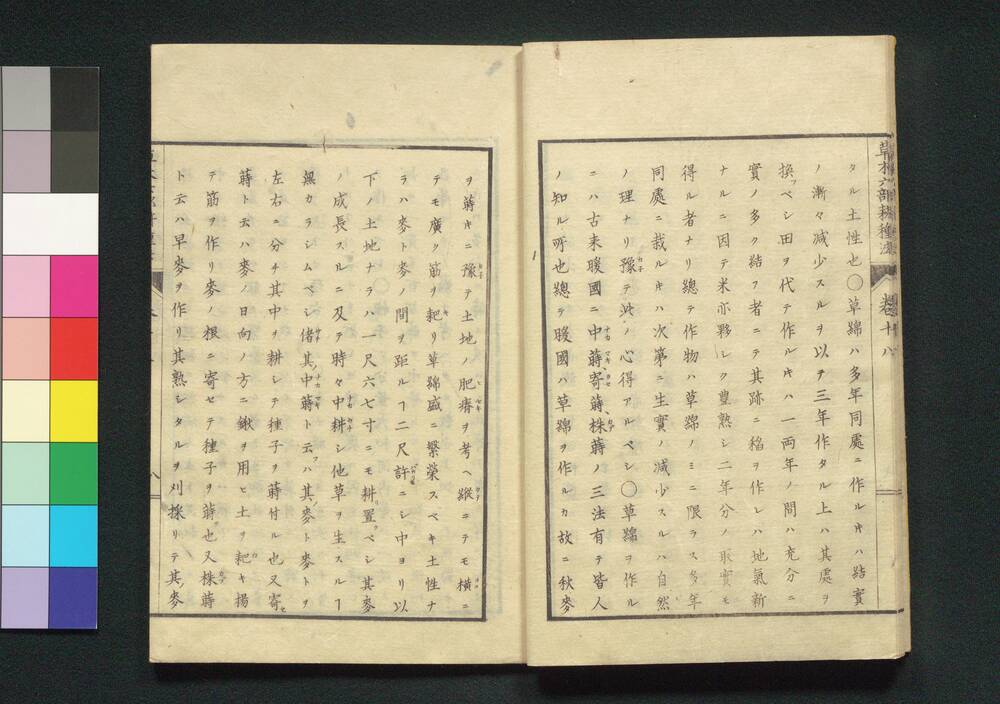 草木六部耕種法 卷十八
タル土性也〇草綿ハ多年同處ニ作ル𪜈ハ結實
ノ漸々減少スルヲ以テ三年作タル上ハ其處ヲ
換ベシ田ヲ代テ作ル𪜈ハ一両年ノ間ハ充分ニ
實ノ多ク結フ者ニテ其跡ニ稻ヲ作レハ地氣新
ナルニ因テ米亦夥シク豊熟シ二年分ノ取實モ
得ル者ナリ總テ作物ハ草綿ノミニ限ラス多年
同處ニ栽ル𪜈ハ次第ニ生實ノ減少スルハ自然
ノ理ナリ豫テ此ノ心得アルベシ〇草綿ヲ作ル
ニハ古来暖國ニ中蒔寄蒔株蒔ノ三法有テ皆人
ノ知ル所也總テ暖國ハ草綿ヲ作ルカ故ニ秋麥
ヲ蒔𪜈ニ豫テ土地ノ肥瘠ヲ考ヘ縱ニテモ横ニ
テモ廣ク筋ヲ耙リ草綿盛ニ繁榮スベキ土性ナ
ラハ麥ト麥ノ間ヲ距ルヿ二尺許ニシ中ヨリ以
下ノ土地ナラハ一尺六七寸ニモ耕置ベシ其麥
ノ成長スルニ及テ時々中耕シ他草ヲ生スルヿ
無カラシムベシ偖其中蒔ト云ハ其麥ト麥トヲ
左右ニ分チ其中ヲ耕シテ種子ヲ蒔付ル也又寄
蒔ト云ハ麥ノ日向ノ方ニ鍬ヲ用ヒ土ヲ耙キ揚
テ筋ヲ作リ麥ノ根ニ寄セテ種子ヲ蒔也又株蒔
ト云ハ早麥ヲ作リ其熟シタルヲ刈採リテ其麥